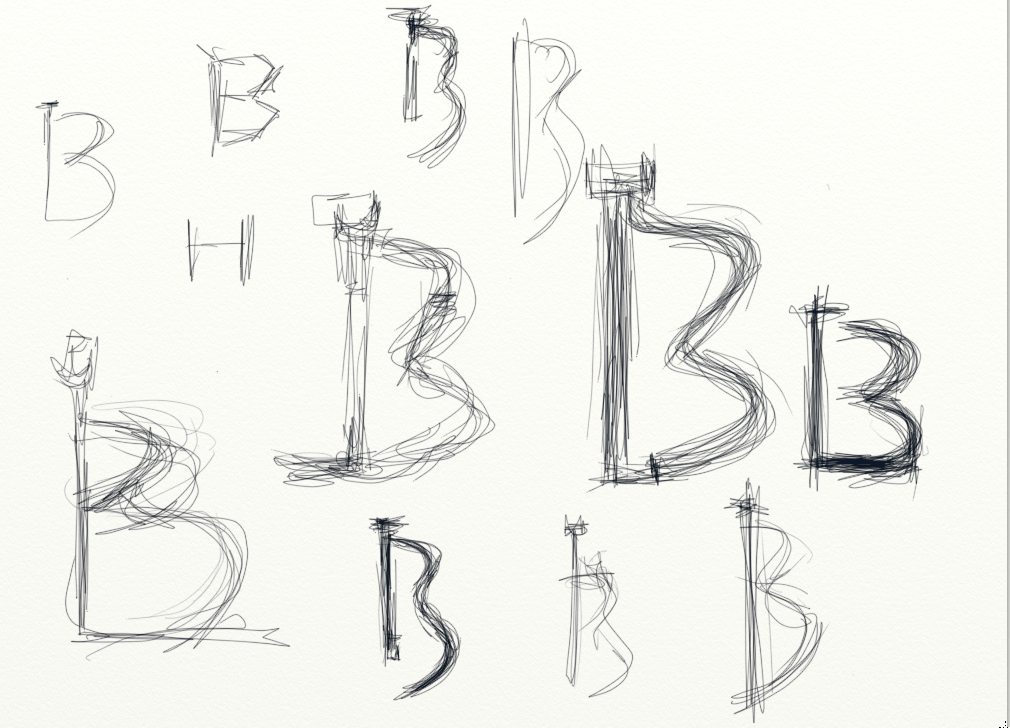 B B B B
H B B B
B B B B